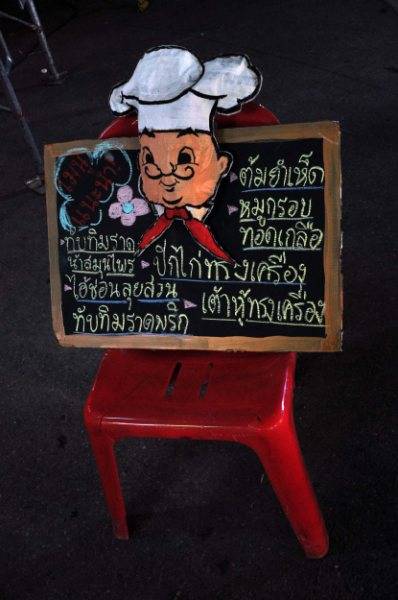 เมนู
แนะนำ!
ต้มยำเห็ด
หมูกรอบ
ทอดเกลือ
ทับทิมราด
น้ำสมุนไพร
ปีกไก่ทรงเครื่อง
ไฮ้ช่อนลุยสวน
เต้าหู้ทรงเครื่อง
ทับทิมราดพริก